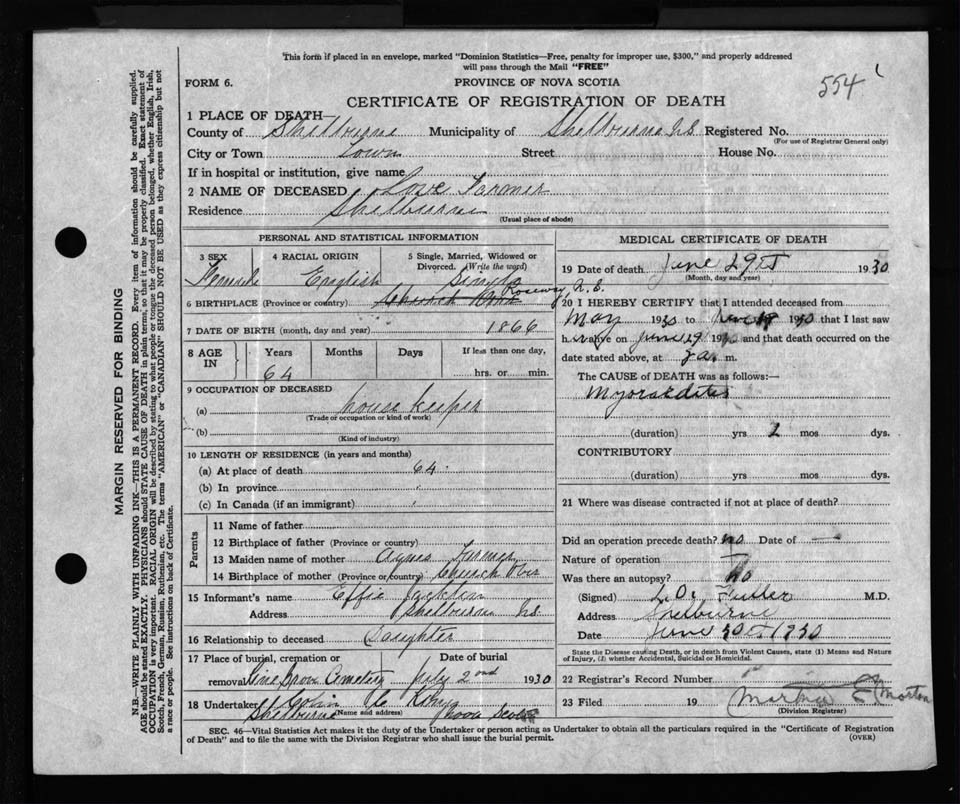 This form if placed in an envelope, marked "Dominion Statistics—Free, penalty for improper use, $300," and properly addressed
will pass through the Mail "FREE"
FORM 6.
PROVINCE OF NOVA SCOTIA
554
CERTIFICATE OF REGISTRATION OF DEATH
1 PLACE OF DEATH—
County of Shelburne Municipality of Shelburne N.S. Registered No.
(For use of Registrar General only)
City or Town Town Street House No.
If in hospital or institution, give name
2 NAME OF DECEASED Love Farmer
Residence Shelburne
(Usual place of abode)
PERSONAL AND STATISTICAL INFORMATION
3 SEX 4 RACIAL ORIGIN 5 Single, Married, Widowed or
Divorced. (Write the word)
Female English Single
6 BIRTHPLACE (Province or country) Roseway N.S.
7 DATE OF BIRTH (month, day and year) 1866
8 AGE IN Years Months Days If less than one day,
64 hrs. or min.
9 OCCUPATION OF DECEASED
(a) house keeper
(Trade or occupation or kind of work)
(b)
(Kind of industry)
10 LENGTH OF RESIDENCE (in years and months)
(a) At place of death 64
(b) In province
(c) In Canada (if an immigrant)
Parents
11 Name of father
12 Birthplace of father (Province or country)
13 Maiden name of mother Agnes Farmer
14 Birthplace of mother (Province or country)
15 Informant's name Effie
Address Shelbourne N.S.
16 Relationship to deceased Daughter
17 Place of burial, cremation or Date of burial
removal Pine Grove Cemetery July 2nd 1930
18 Undertaker
(Name and address)
Shelburne Nova Scotia
MEDICAL CERTIFICATE OF DEATH
19 Date of death June 29th 1930
(Month, day and year)
20 I HEREBY CERTIFY that I attended deceased from
May 1930 to 1930 that I last saw
h alive on June 29 1930 and that death occurred on the
date stated above, at m.
The CAUSE OF DEATH was as follows:—
Myocarditis
(duration) yrs 2 mos dys.
CONTRIBUTORY
(duration) yrs. mos. dys.
21 Where was disease contracted if not at place of death?
Did an operation precede death? no Date of —
Nature of operation —
Was there an autopsy? No
(Signed) L. O. Fuller M.D.
Address Shelburne
Date June 30th 1930
State the Disease causing Death, or in death from Violent Causes, state (1) Means and Nature
of Injury, (2) whether Accidental, Suicidal or Homicidal.
22 Registrar's Record Number
23 Filed 19 Martha E Morton
(Division Registrar)
SEC. 46—Vital Statistics Act makes it the duty of the Undertaker or person acting as Undertaker to obtain all the particulars required in the "Certificate of Registration
of Death" and to file the same with the Division Registrar who shall issue the burial permit. (OVER)
MARGIN RESERVED FOR BINDING
N.B.—WRITE PLAINLY WITH UNFADING INK—THIS IS A PERMANENT RECORD. Every item of information should be carefully supplied.
AGE should be stated EXACTLY. PHYSICIANS should STATE CAUSE OF DEATH in plain terms, so that it may be properly classified. Exact statement of
OCCUPATION is very important. RACIAL ORIGIN will be described by stating to what people or tongue the deceased person belonged, whether English, Irish,
Scotch, French, German, Russian, Ruthenian, etc. The terms "AMERICAN" or "CANADIAN" SHOULD NOT BE USED as they express citizenship but not
a race or people. See instructions on back of Certificate.